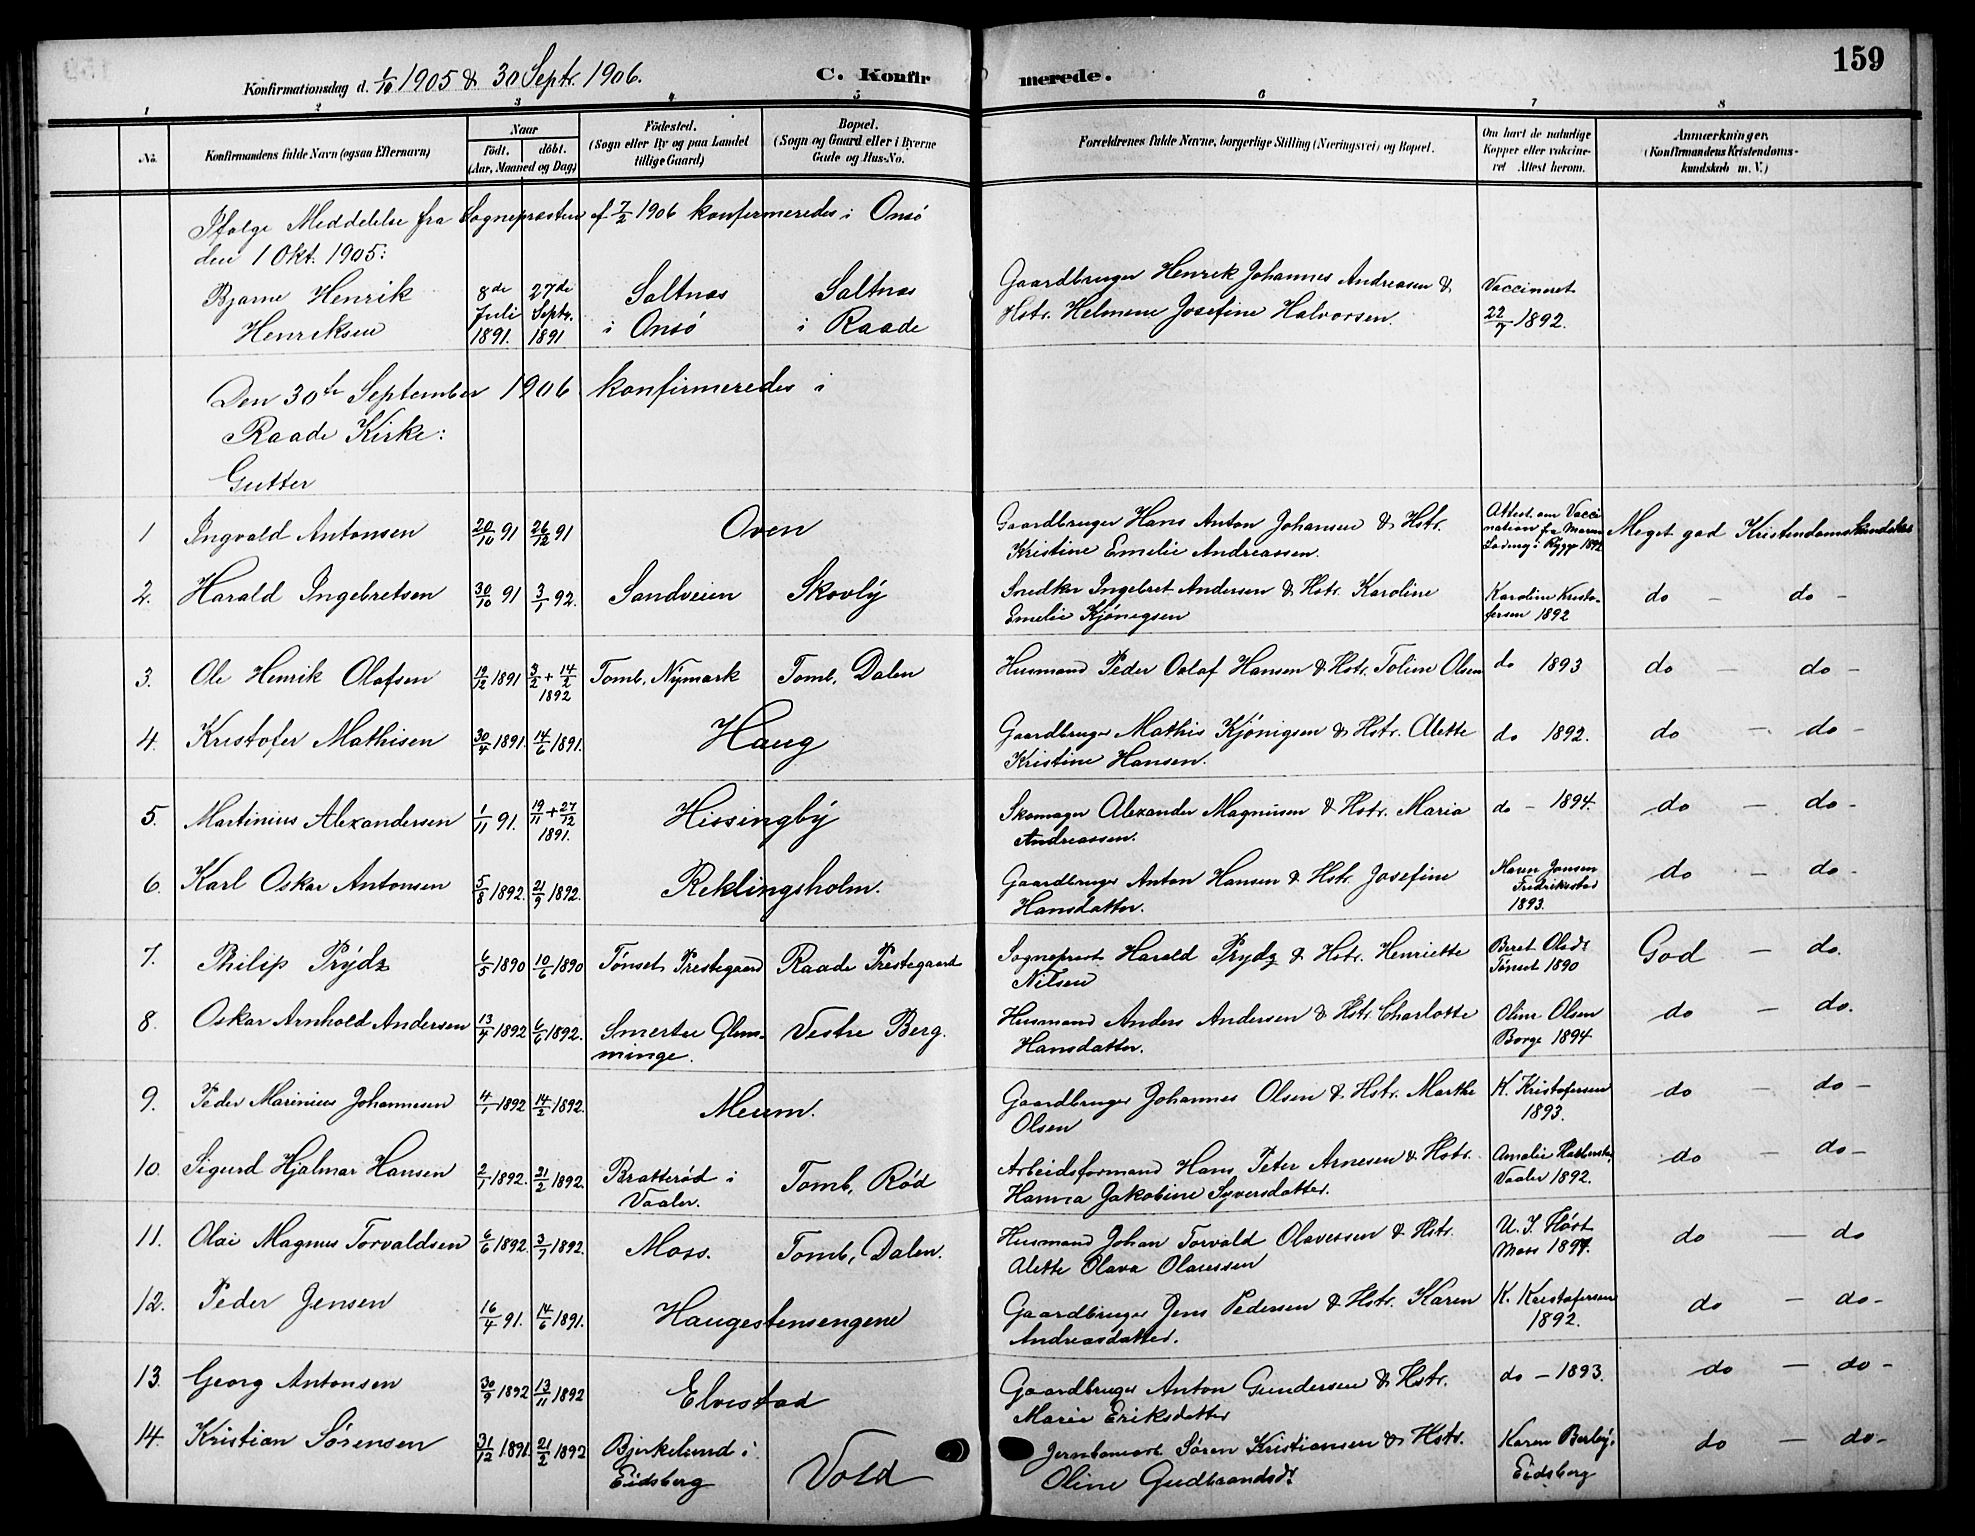 159
Konfirmationsdag d. 1/10 1905 & 30 Septr. 1906.
C. Konfirmerede.
1 2 3 4 5 6 7 8
No.
Konfirmandens fulde Navn (ogsaa Efternavn)
Naar
Født. døbt.
(Aar, Maaned og Dag)
Fødested.
(Sogn eller By og paa Landet
tillige Gaard)
Bopæl.
(Sogn og Gaard eller i Byerne
Gade og Hus-No.
Forældrenes fulde Navne, borgerlige Stilling (Næringsvei) og Bopæl.
Om havt de naturlige
Kopper eller vakcine-
ret Attest herom.
Anmærkninger.
(Konfirmandens Kristendoms-
kundskab m. V.)
Ifølge Meddelelse fra Sognepræsten af 7/2 1906 konfirmeredes i Onsø
den 1 Okt. 1905:
Bjarne Henrik
Henriksen
8de
Juli
1891.
27de
Septr.
1891
Saltnæs
i Onsø
Saltnæs
i Raade
Gaardbruger Henrik Johannes Andreasen &
Hstr. Helmine Josefine Halvorsen.
Vaccineret
22/7 1892.
Den 30te September 1906 konfirmeredes i
Raade Kirke:
Gutter
1 Ingvald Antonsen 20/10 91 26/12 91 Oven
Gaardbruger Hans Anton Johansen & Hstr.
Kristine Emilie Andreassen.
Attest om Vacci
nation fra Maren
i Rygge 1892
Meget god Kristendomskundskab
2. Harald Ingebretsen 30/10 91 3/1 92. Sandveien Skovly
Snedker Ingebret Andersen & Hstr. Karoline
Emelie Kjønigsen
Karoline Kristo-
fersen 1892
do - do -
3. Ole Henrik Olafsen 12/12 1891 3/2 + 14/2
1892
Tomb, Nymark Tomb, Dalen
Husmand Peder Oolaf Hansen & Hstr. Toline Olsen
do 1893
do - do -
4. Kristofer Mathisen 30/4 1891. 14/6 1891. Haug
Gaardbruger Mathis Kjønigsen & Hstr. Alette
Kristine Hansen.
do 1892.
do - do -
5. Martinius Alexandersen 1/11 91. 19/11 + 27/12
1891.
Hissingby
Skomager Alexander Magnusen & Hstr. Maria
Andreassen.
do - 1894.
do - do -
6. Karl Oskar Antonsen 5/8 1892. 21/9 1892. Reklingsholm.
Gaardbruger Anton Hansen & Hstr. Josefine
Hansdatter.
Maren Jonsen
Fredrikstad
1893.
do - do -
7. Philip Prydz 6/5 1890 10/6 1890 Tønset Prestegaard Raade Prestegaard
Sogneprest Harald Prydz & Hstr. Henriette
Nilsen
Beret Olsdr
Tønset 1890
God - do.
8. Oskar Arnhold Andersen 13/4 1892 6/6 1892. Smertu Glem-
minge.
Vestre Berg.
Husmand Anders Andersen & Hstr. Charlotte
Hansdatter.
Oline Olsen
Borge 1894
do - do.
9. Peder Marinius Johannesen 4/1 1892 14/2 1892. Meum.
Gaardbruger Johannes Olsen & Hstr. Marthe
Olsen
K. Kristofersen
1893.
do - do -
10. Sigurd Hjalmar Hansen 2/1 1892. 21/2 1892. Bratterød i
Vaaler.
Tomb, Rød
Arbeidsformand Hans Peter Arnesen & Hstr.
Hanna Jakobine Syversdatter.
Amalie
Vaaler 1892.
do - do -
11. Olai Magnus Torvaldsen 6/6 1892. 3/7 1892. Moss. Tomb, Dalen.
Husmand Johan Torvald Olavessen & Hstr.
Alette Olava Olavessen
Moss 1894.
do - do
12. Peder Jensen 16/4 91. 14/6 1891. Haugestensengene
Gaardbruger Jens Pedersen & Hstr. Karen
Andreasdatter.
K. Kristofersen
1892.
do - do -
13. Georg Antonsen 30/9 1892 13/11 1892 Elvestad
Gaardbruger Anton Gundersen & Hstr.
Marie Eriksdatter
do - 1893.
do - do -
14. Kristian Sørensen 31/12 1891. 21/2 1892 Bjerkelund i
Eidsberg
Vold
Søren Kristiansen & Hstr.
Oline Gudbrandsdr
Karen Berby i
Eidsberg
do - do -